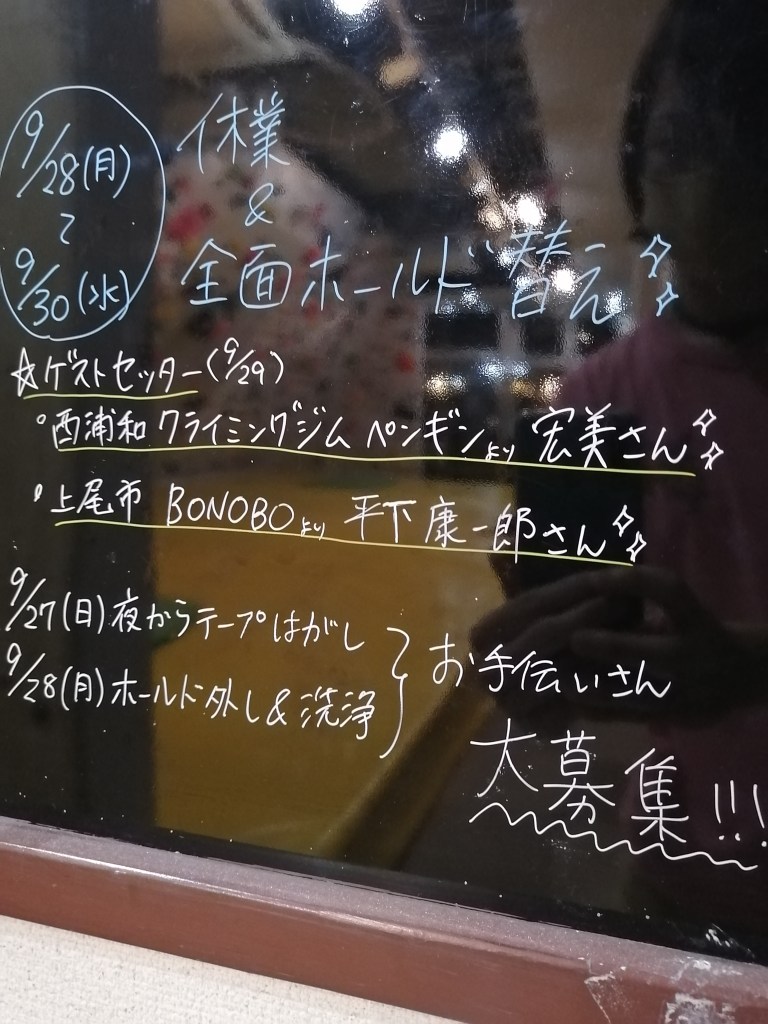 9/28(月)
〜
9/30(水)
休業
&
全面ホールド替え
☆ゲストセッター(9/29)
・西浦和 クライミングジム ペンギンより 宏美さん
・上尾市 BONOBOより 平下康一郎さん
9/27(日)夜からテープはがし
9/28(月)ホールド外し&洗浄
お手伝いさん
大募集!!!